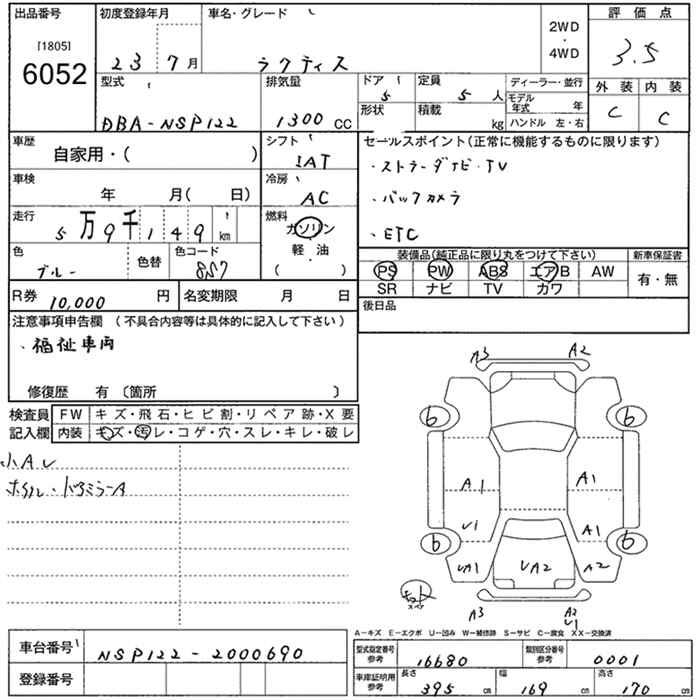 出品番号
[1805]
6052
初度登録年月
23 7月
車名・グレード
ラクティス
2WD
・
4WD
評価点
3.5
外装 内装
C C
型式
DBA-NSP122
排気量
1300 CC
ドア
5
定員
5 人
形状
積載
kg
ディーラー・並行
モデル年式 年
ハンドル 左・右
車歴
自家用・( )
シフト
IAT
車検
年 月( 日)
冷房
AC
走行
5万9千149 km
燃料
ガソリン
軽・油
( )
色
ブルー
色替
色コード
8S7
R券 10,000 円
名変期限 月 日
セールスポイント(正常に機能するものに限ります)
・ストラーダナビ・TV
・バックカメラ
・ETC
装備品(純正品に限り丸をつけて下さい)
PS PW ABS エアB AW
SR ナビ TV カワ
新車保証書
有・無
後日品
注意事項申告欄 (不具合内容等は具体的に記入して下さい)
、福祉車両
修復歴 有 〔箇所 〕
検査員記入欄
FW キズ・飛石・ヒビ割・リペア跡・X要
内装 キズ・汚レ・コゲ・穴・スレ・キレ・破レ
小Aレ
ホイル・ドアミラーA
A3 A2
6 6
A1 A1
U1 A1
6 6
UA1 UA2 A2
スペア
A3 A2
U1
A-キズ E-エクボ U-凹み W-補修跡 S-サビ C-腐食 XX-交換済
車台番号 NSP122-2000690
登録番号
型式指定番号 参考 16680
類別区分番号 参考 0001
車庫証明用 参考
長さ 395 cm
幅 169 cm
高さ 170 cm